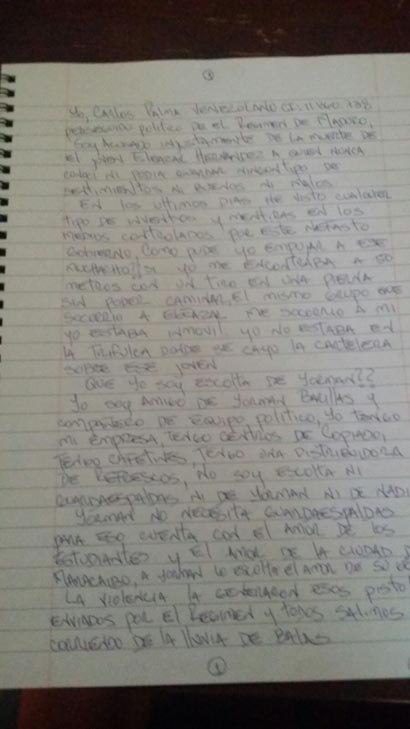 Yo, Carlos Palma Venezolano CI.
perseguido politico por el Regimen de Maduro,
Soy Acusado injustamente de la muerte de
el joven Eleazar Hernández a quien nunca
conocí ni podia guardar ningun tipo de
sentimientos ni buenos ni malos
En los ultimos dias he visto cualquier
tipo de inventos y mentiras en los
medios controlados por este nefasto
Gobierno, Como pude yo empujar a ese
muchacho??, si yo me encontraba a 50
metros con un tiro en una pierna
sin poder caminar, El mismo grupo que
socorrio a Eleazar me socorrio a mi
yo estaba inmovil. yo no estaba en
la trifulca donde se cayo la cartelera
sobre ese joven
Que yo soy escolta de Yorman??
Yo soy amigo de Yorman Barillas y
compañero de equipo politico, yo tengo
mi empresa, tengo centros de copiado,
tengo cafetines, tengo una distribuidora
de refrescos, no soy escolta ni
guardaespaldas ni de Yorman ni de nadi
Yorman no necesita guardaespaldas
para eso cuenta con el amor de los
estudiantes y el amor de la ciudad d
Maracaibo, a Yorman lo escolta el amor de su
La violencia la generaron esos pisto
enviados por el Regimen y todos salimos
corriendo de la lluvia de balas
1